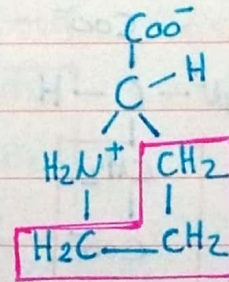 Coo⁻
C H
H₂N⁺ CH₂
H₂C CH₂